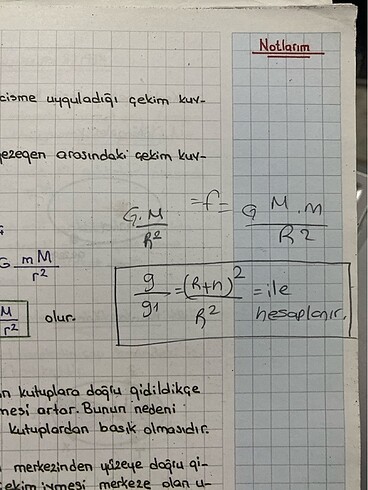 Notlarım
cisme uyguladığı çekim kuv-
gezegen arasındaki çekim kuv-
G.M / R² =f= G M.m / R²
G mM / r²
g / g1 = (R+h)² / R² = ile hesaplanır.
M / r² olur.
n kutuplara doğru gidildikçe
mesi artar. Bunun nedeni
kutuplardan basık olmasıdır.
merkezinden yüzeye doğru gi-
çekim ivmesi merkeze olan u-